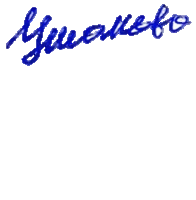 Ушаково